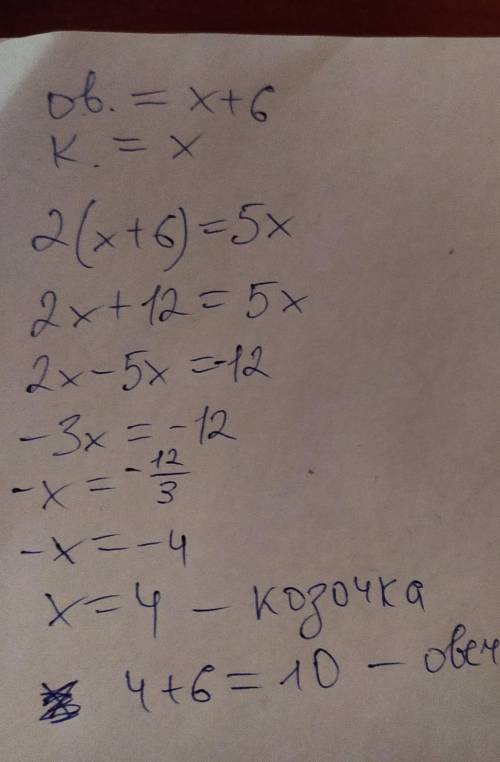 ов. = x+6
к. = x
2(x+6)=5x
2x+12=5x
2x-5x=-12
-3x=-12
-x=-12/3
-x=-4
x=4 - козочка
4+6=10 - овеч